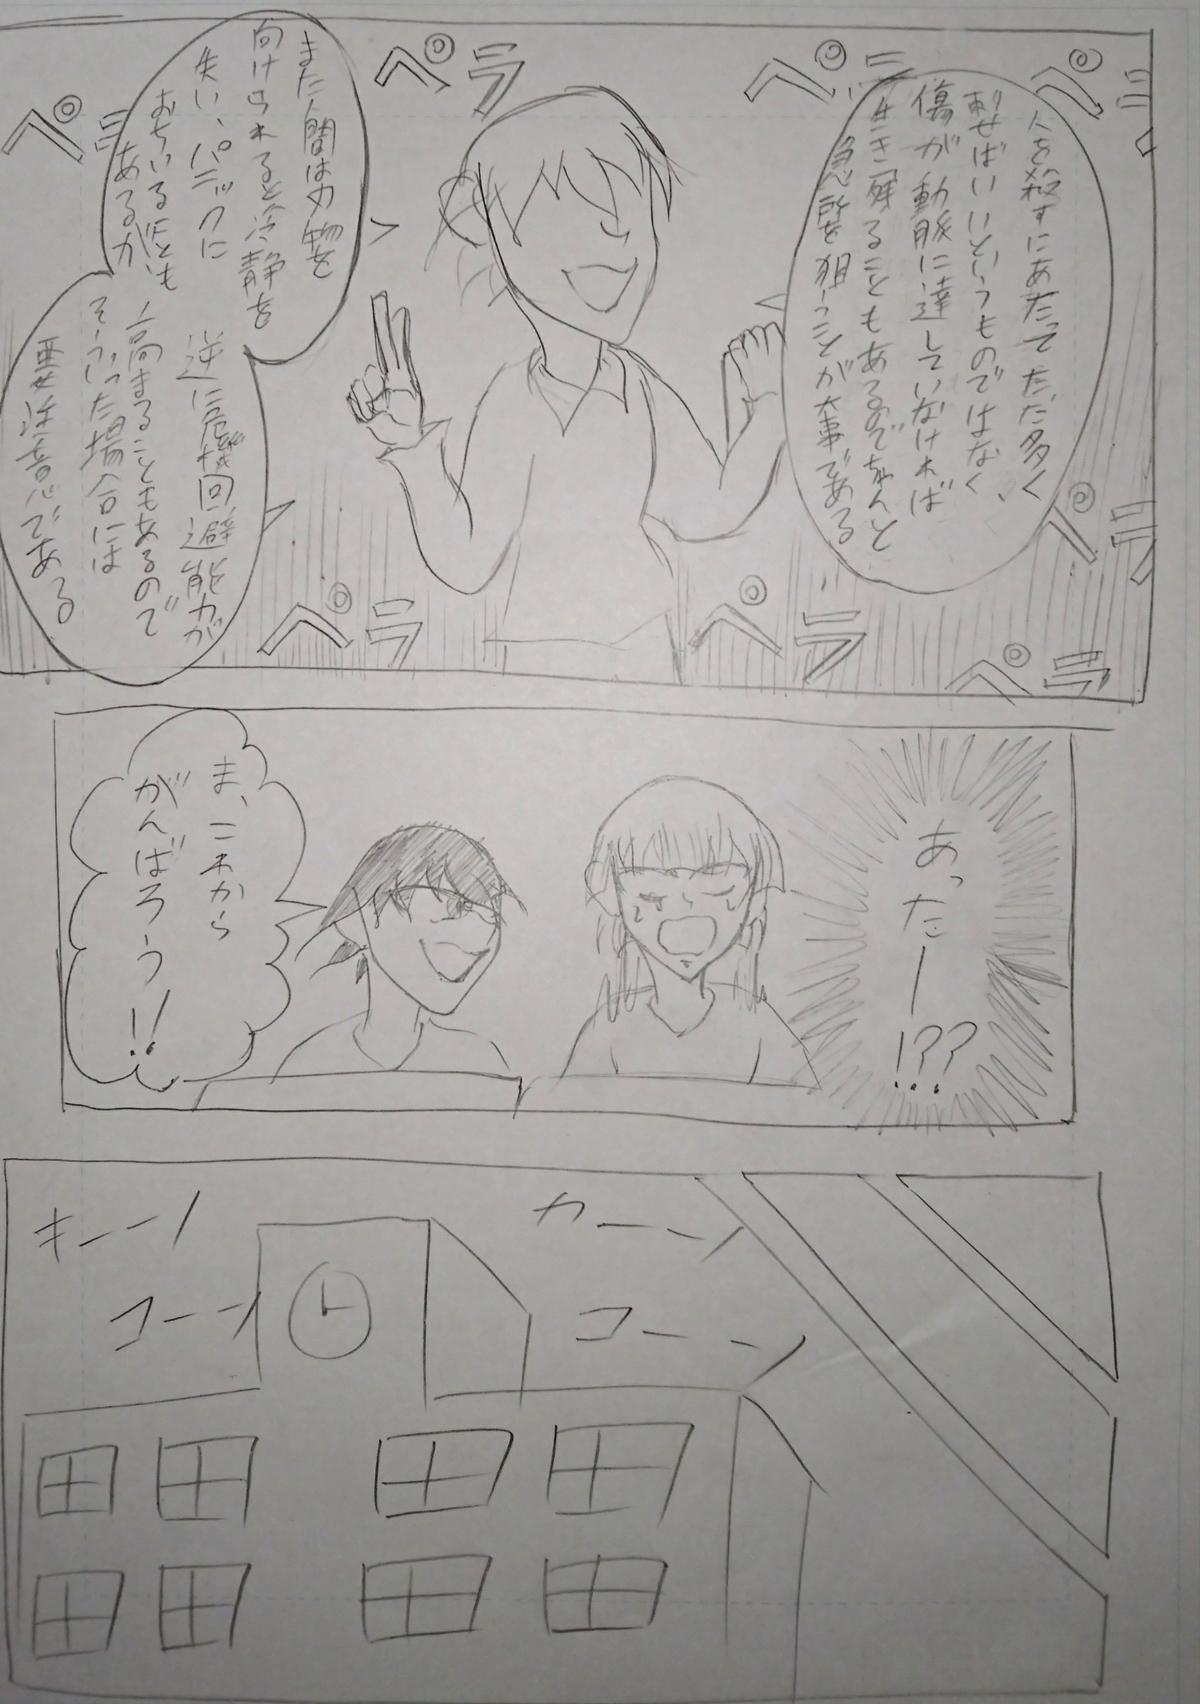 人を殺すにあたってただ多く
刺せばいいというものではなく、
傷が動脈に達していなければ
生き残ることもあるのでちゃんと
急所を狙うことが大事である
また人間は刃物を
向けられると冷静を
失い、パニックに
おちいることも
あるが、
逆に危機回避能力が
高まることもあるので
そういった場合には
要注意である
ペラ
ペラ
ペラ
ペラ
ペラ
ペラ
ペラ
ペラ
あったー!??
ま、これから
がんばろう!!
キーン
コーン
カーン
コーン